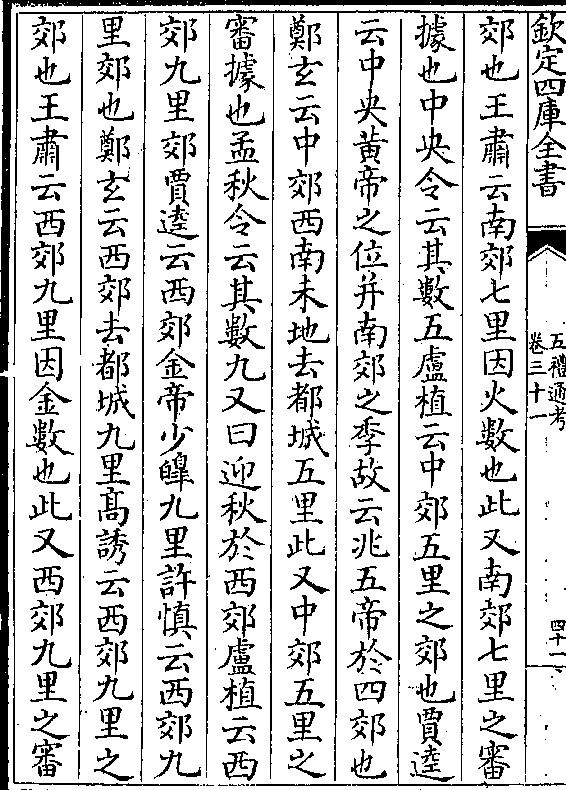 欽定四庫全書
五禮通考
卷三十一
四十一
郊也王肅云南郊七里因火數也此又南郊七里之審
據也中央令云其數五盧植云中郊五里之郊也賈逵
云中央黃帝之位并南郊之季故云兆五帝於四郊也
鄭玄云中郊西南未地去都城五里此又中郊五里之
審據也孟秋令云其數九又曰迎秋於西郊盧植云西
郊九里郊賈逵云西郊金帝少皞九里許慎云西郊九
里郊也鄭玄云西郊去都城九里髙誘云西郊九里之
郊也王肅云西郊九里因金數也此又西郊九里之審